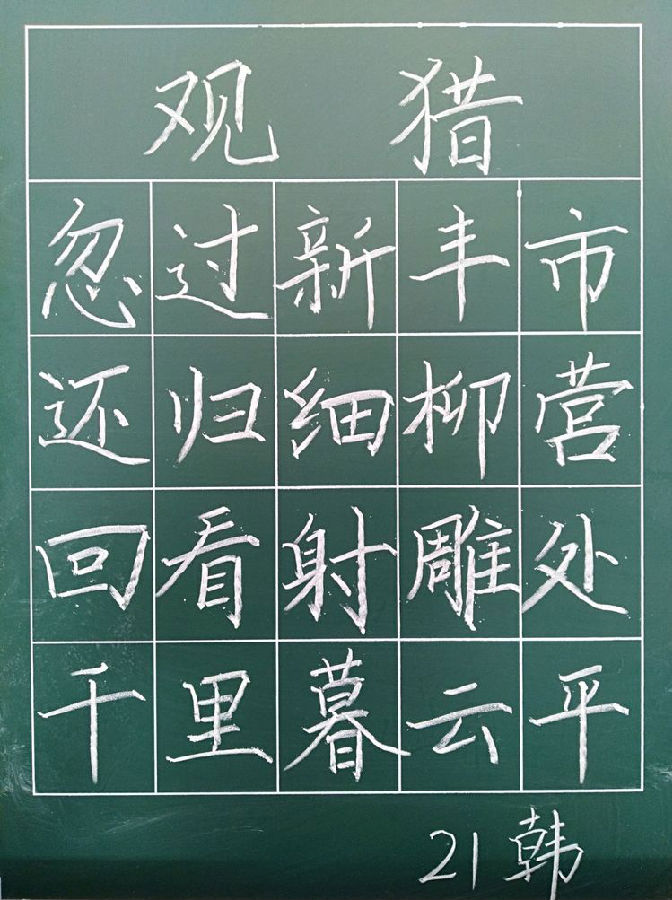 观猎
忽过新丰市
还归细柳营
回看射雕处
千里暮云平
21韩